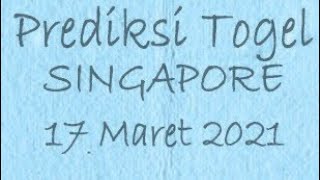 Prediksi Togel
SINGAPORE
17 Maret 2021